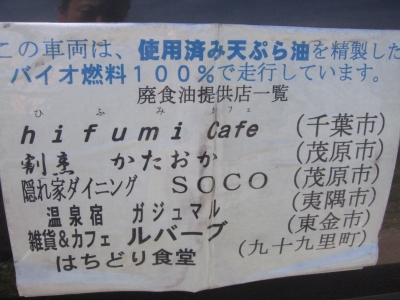 この車両は、使用済み天ぷら油を精製した
バイオ燃料100%で走行しています。
廃食油提供店一覧
ひふみカフェ
hifumi Cafe (千葉市)
割烹 かたおか (茂原市)
隠れ家ダイニング SOCO (茂原市)
温泉宿 ガジュマル (夷隅市)
雑貨&カフェ ルバーブ (東金市)
はちどり食堂 (九十九里町)